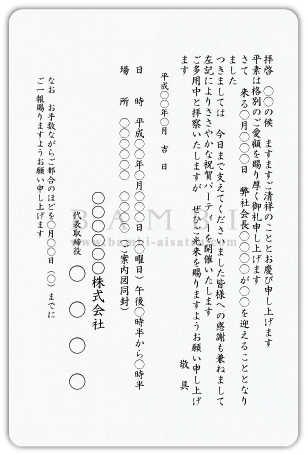 拝啓　〇〇の候　ますますご清祥のこととお慶び申し上げます
平素は格別のご愛顧を賜り厚く御礼申し上げます
さて　来る〇月〇〇日　弊社会長〇〇〇〇が〇〇を迎えることとなり
ました
つきましては　今日まで支えてくださいました皆様への感謝も兼ねまして
左記によりささやかな祝賀パーティーを開催いたします
ご多用中と拝察いたしますが　ぜひご光来を賜りますようお願い申し上げ
ます
敬具
平成〇〇年〇月　吉日
日　時　平成〇〇年〇月〇〇日（〇曜日）午後〇時半から〇時半
場　所　〇〇〇〇〇　〇〇〇〇〇（ご案内図同封）
〇〇〇〇〇〇株式会社
代表取締役　〇　〇　〇　〇
なお　お手数ながらご都合のほどを〇月〇〇日（〇）までに
ご一報賜りますようお願い申し上げます
BAMBI
www.bambi-aisatsu.com